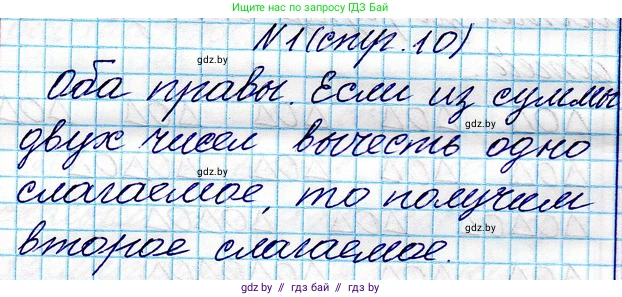 Ищите нас по запросу ГДЗ Бай
N1(стр.10)
gdz.by
Оба правы. Если из суммы
gdz.by
двух чисел вычесть одно
gdz.by
слагаемое, то получим
gdz.by
второе слагаемое.
gdz.by // гдз бай // гдз by